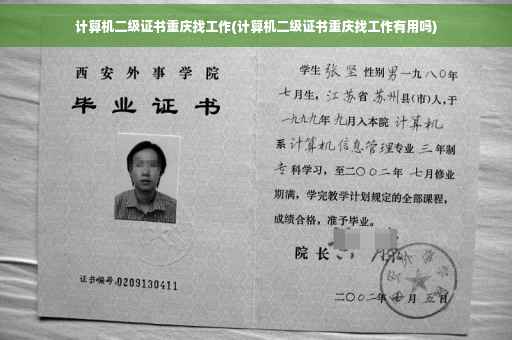 计算机二级证书重庆找工作(计算机二级证书重庆找工作有用吗)
西安外事学院
毕业证书
证书编号:0209130411
学生张坚性别男一九八〇年
七月生,江苏省苏州县(市)人,于
一九九九年九月入本院计算机
系计算机信息管理专业三年制
专科学习,至二〇〇二年七月修业
期满,学完教学计划规定的全部课程,
成绩合格,准予毕业。
院长
二〇〇二年 月五日